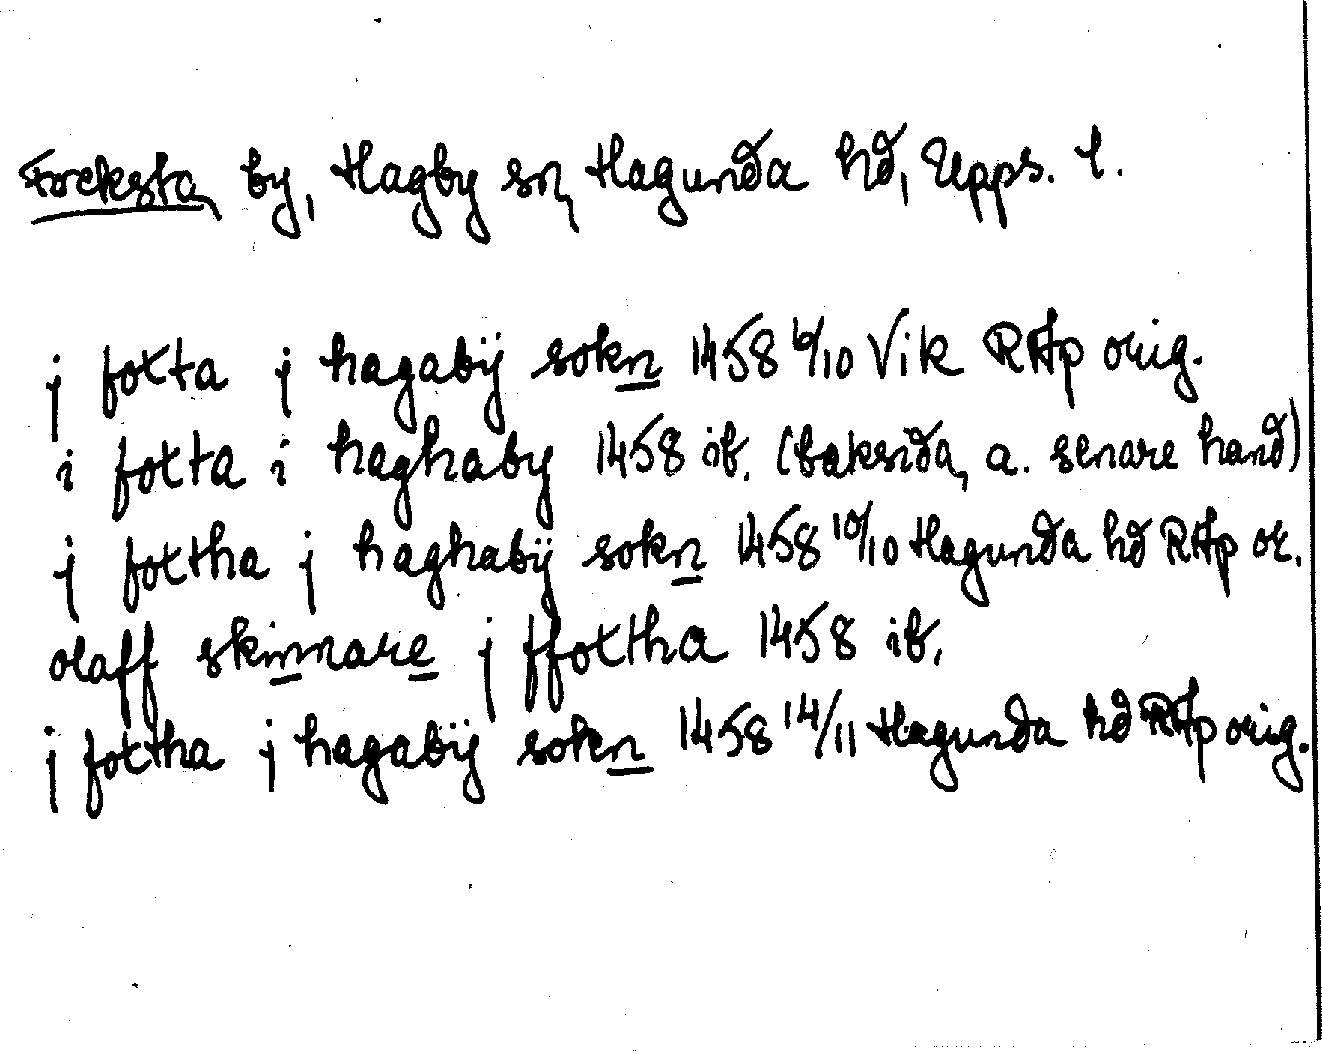 Focksta, by, Hagby sn, Hagunda hd, Upps. l.
j fotta j hagabÿ sokn 1458 6/10 Vik RAp orig.
i fotta i haghaby 1458 ib. (baksida, a. senare hand)
j fottha j haghabÿ sokn 1458 10/10 Hagunda hd RAp or.
olaff skinnare j ffottha 1458 ib.
j fottha j hagabÿ sokn 1458 14/11 Hagunda hd RAp orig.